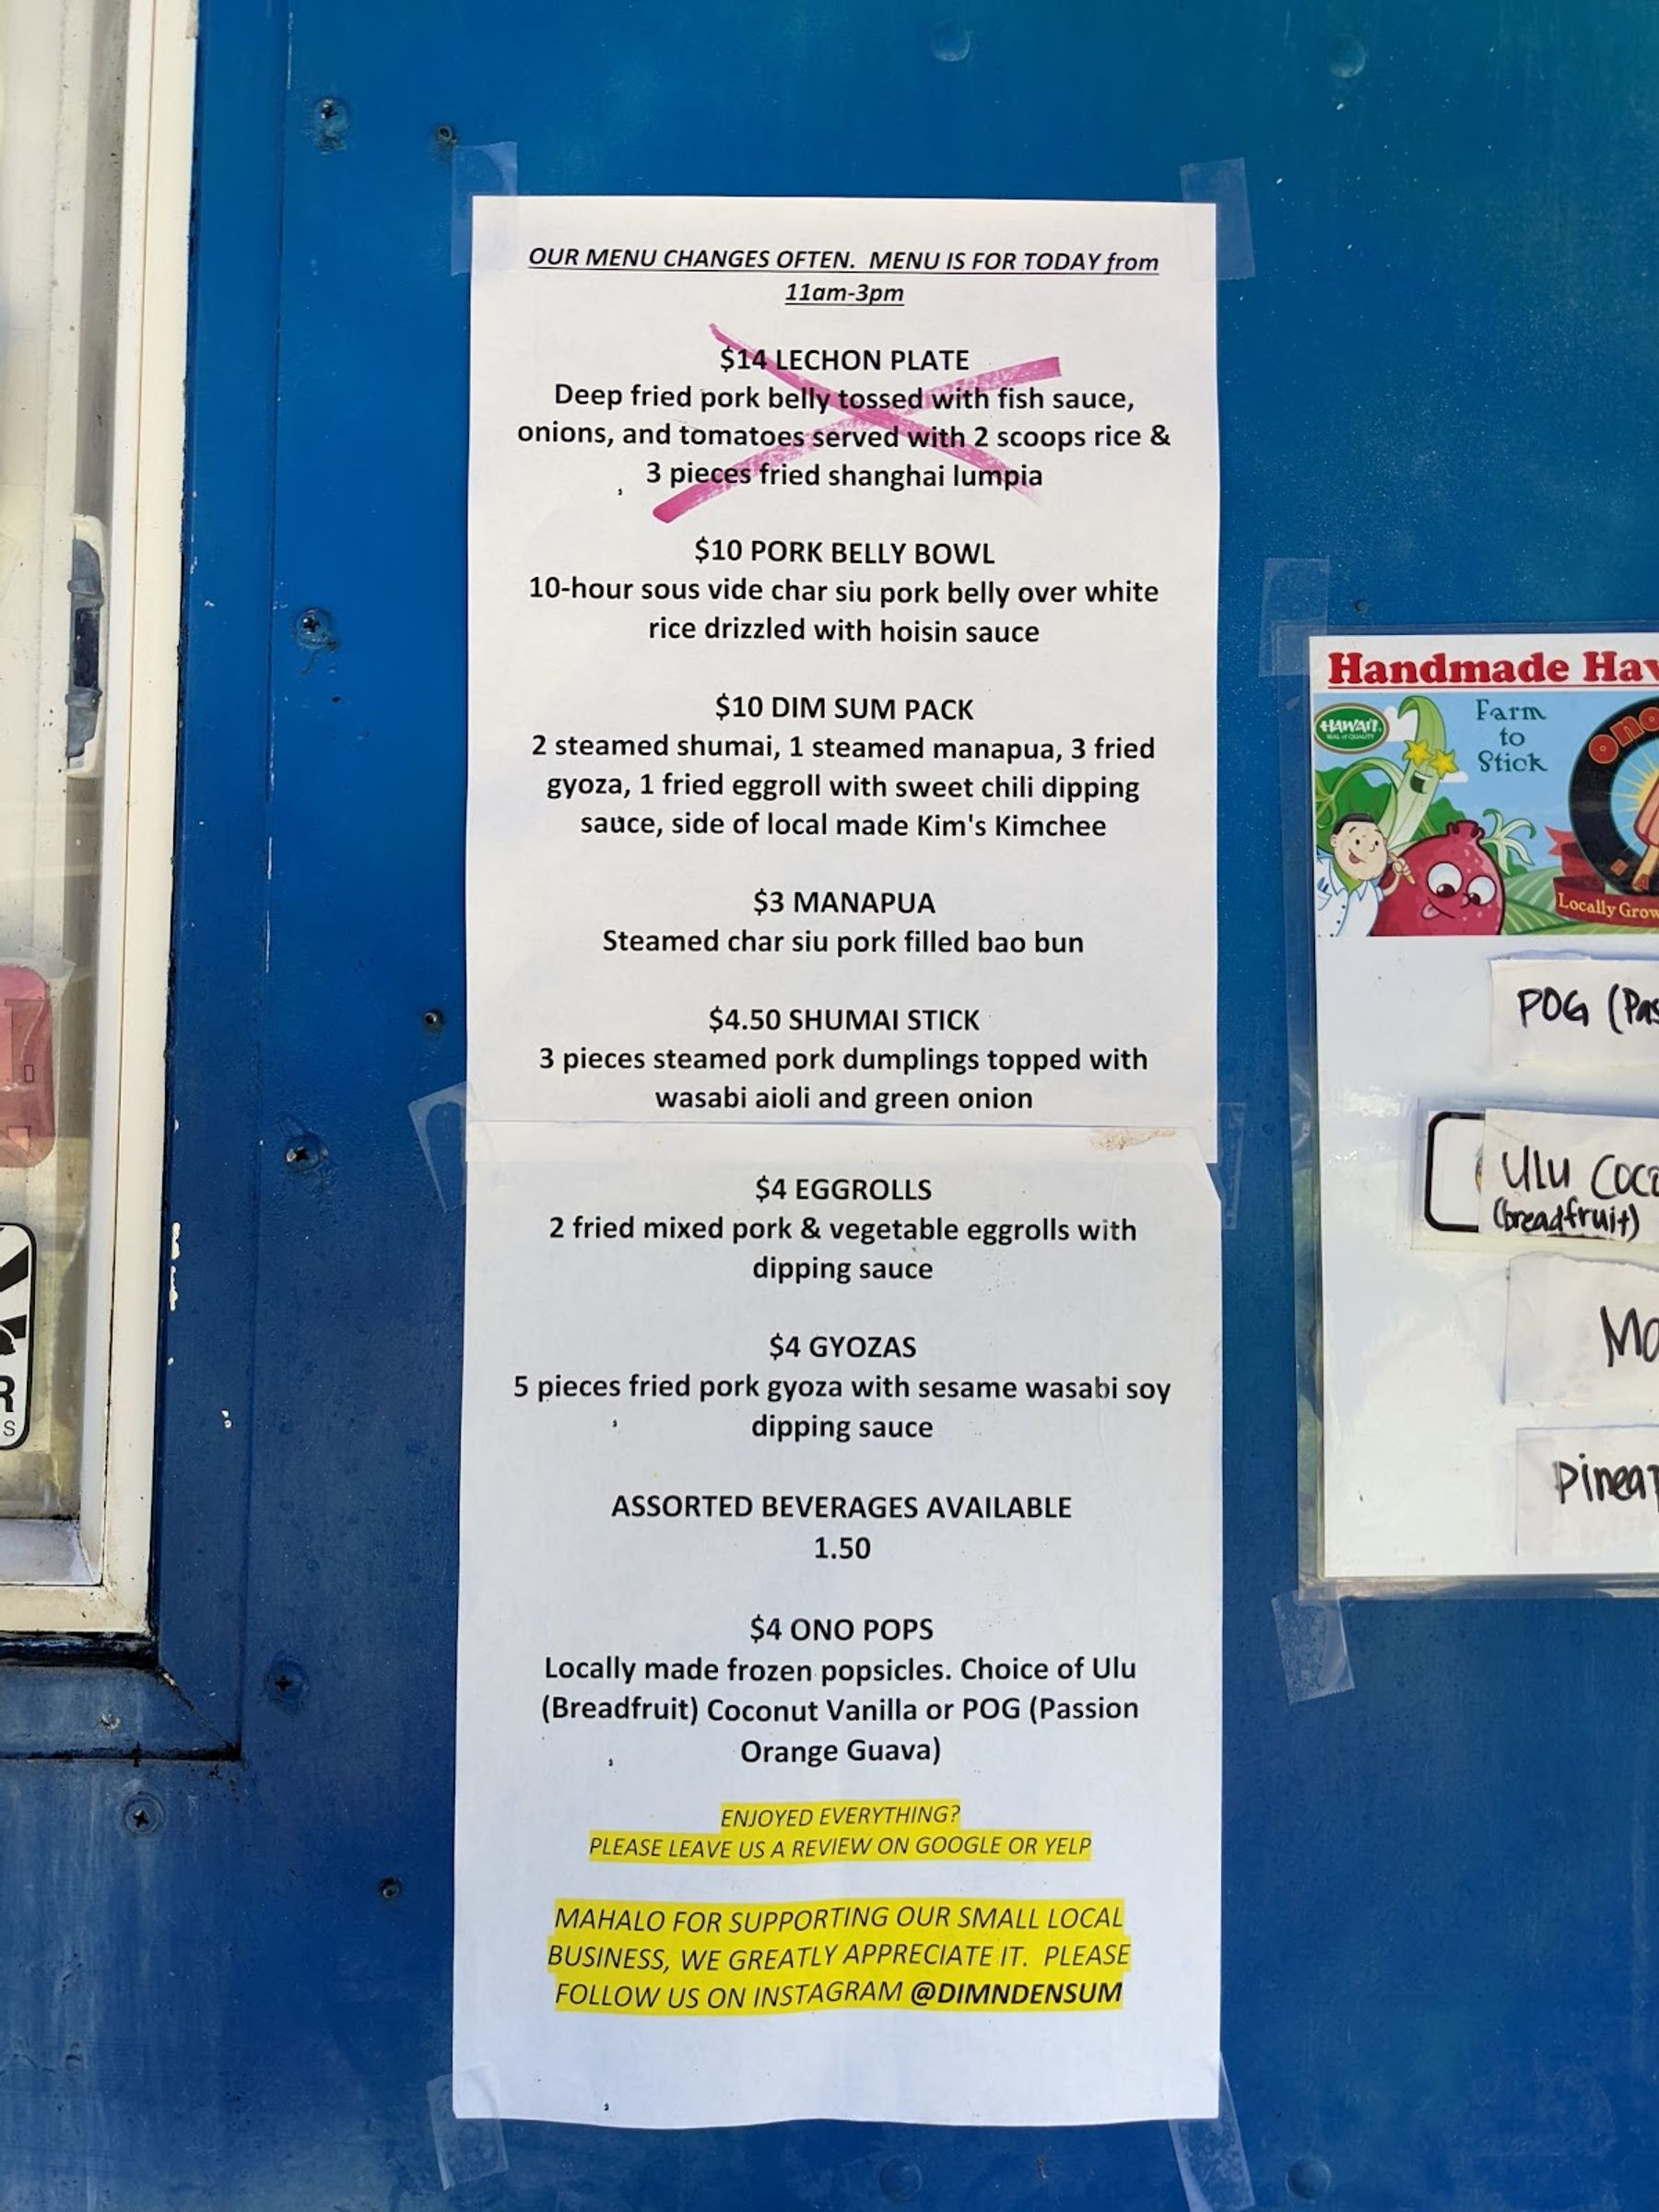 OUR MENU CHANGES OFTEN.  MENU IS FOR TODAY from
11am-3pm
$14 LECHON PLATE
Deep fried pork belly tossed with fish sauce,
onions, and tomatoes served with 2 scoops rice &
3 pieces fried shanghai lumpia
$10 PORK BELLY BOWL
10-hour sous vide char siu pork belly over white
rice drizzled with hoisin sauce
$10 DIM SUM PACK
2 steamed shumai, 1 steamed manapua, 3 fried
gyoza, 1 fried eggroll with sweet chili dipping
sauce, side of local made Kim's Kimchee
$3 MANAPUA
Steamed char siu pork filled bao bun
$4.50 SHUMAI STICK
3 pieces steamed pork dumplings topped with
wasabi aioli and green onion
$4 EGGROLLS
2 fried mixed pork & vegetable eggrolls with
dipping sauce
$4 GYOZAS
5 pieces fried pork gyoza with sesame wasabi soy
dipping sauce
ASSORTED BEVERAGES AVAILABLE
1.50
$4 ONO POPS
Locally made frozen popsicles. Choice of Ulu
(Breadfruit) Coconut Vanilla or POG (Passion
Orange Guava)
ENJOYED EVERYTHING?
PLEASE LEAVE US A REVIEW ON GOOGLE OR YELP
MAHALO FOR SUPPORTING OUR SMALL LOCAL
BUSINESS, WE GREATLY APPRECIATE IT.  PLEASE
FOLLOW US ON INSTAGRAM @DIMNDENSUM
Handmade Haw
HAWAI'I
SEAL of QUALITY
Farm
to
Stick
Ono
Locally Grow
POG (Pas
ULU COCO
(breadfruit)
Ma
Pineap
R
S